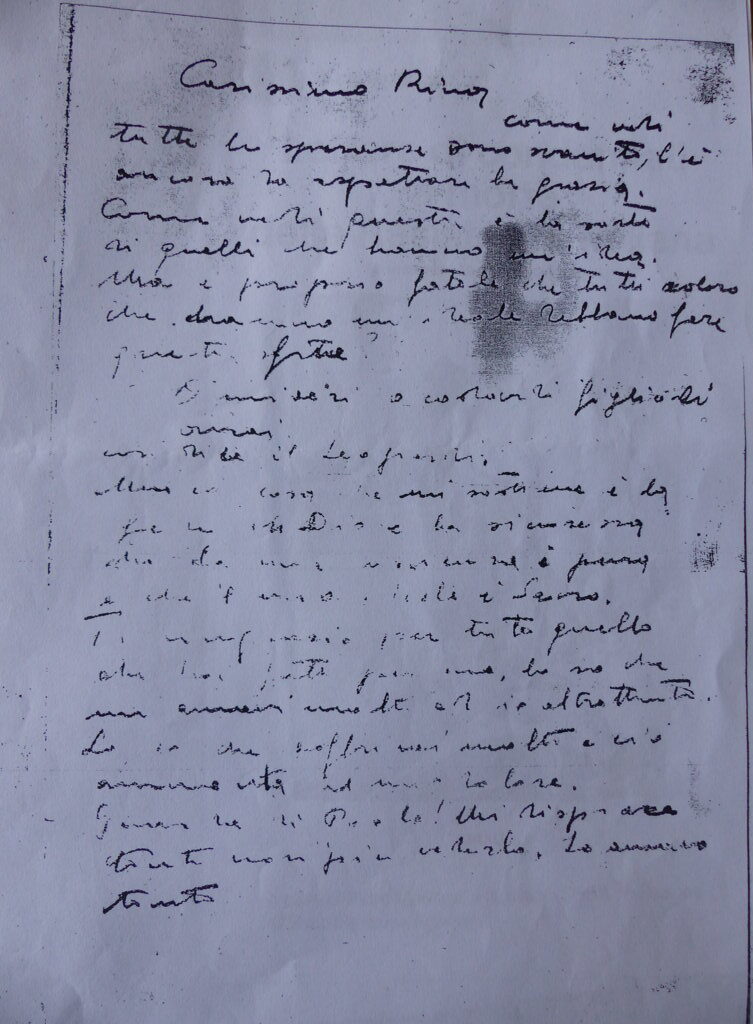 Carissimo Rino,
come vedi
tutte le speranze sono svanite, c'è
ancora da aspettare la grazia.
Come vedi questa è la sorte
di quelli che hanno un'idea.
Ma è proprio fatale che tutti coloro
che hanno un ideale debbano fare
questa fine?
figlioli
omai
il Leopardi.
cosa che mi sostiene è la
fede in Dio e la sicurezza
che la mia è pura
e che il mio ideale è sacro.
Ti ringrazio per tutto quello
che hai fatto per me, lo so che
mi amavi molto ed io altrettanto.
Lo so che soffrirai molto e ciò
aumenta il mio dolore.
di Paola! Mi dispiace
tanto non più vederla. La amavo
tanto